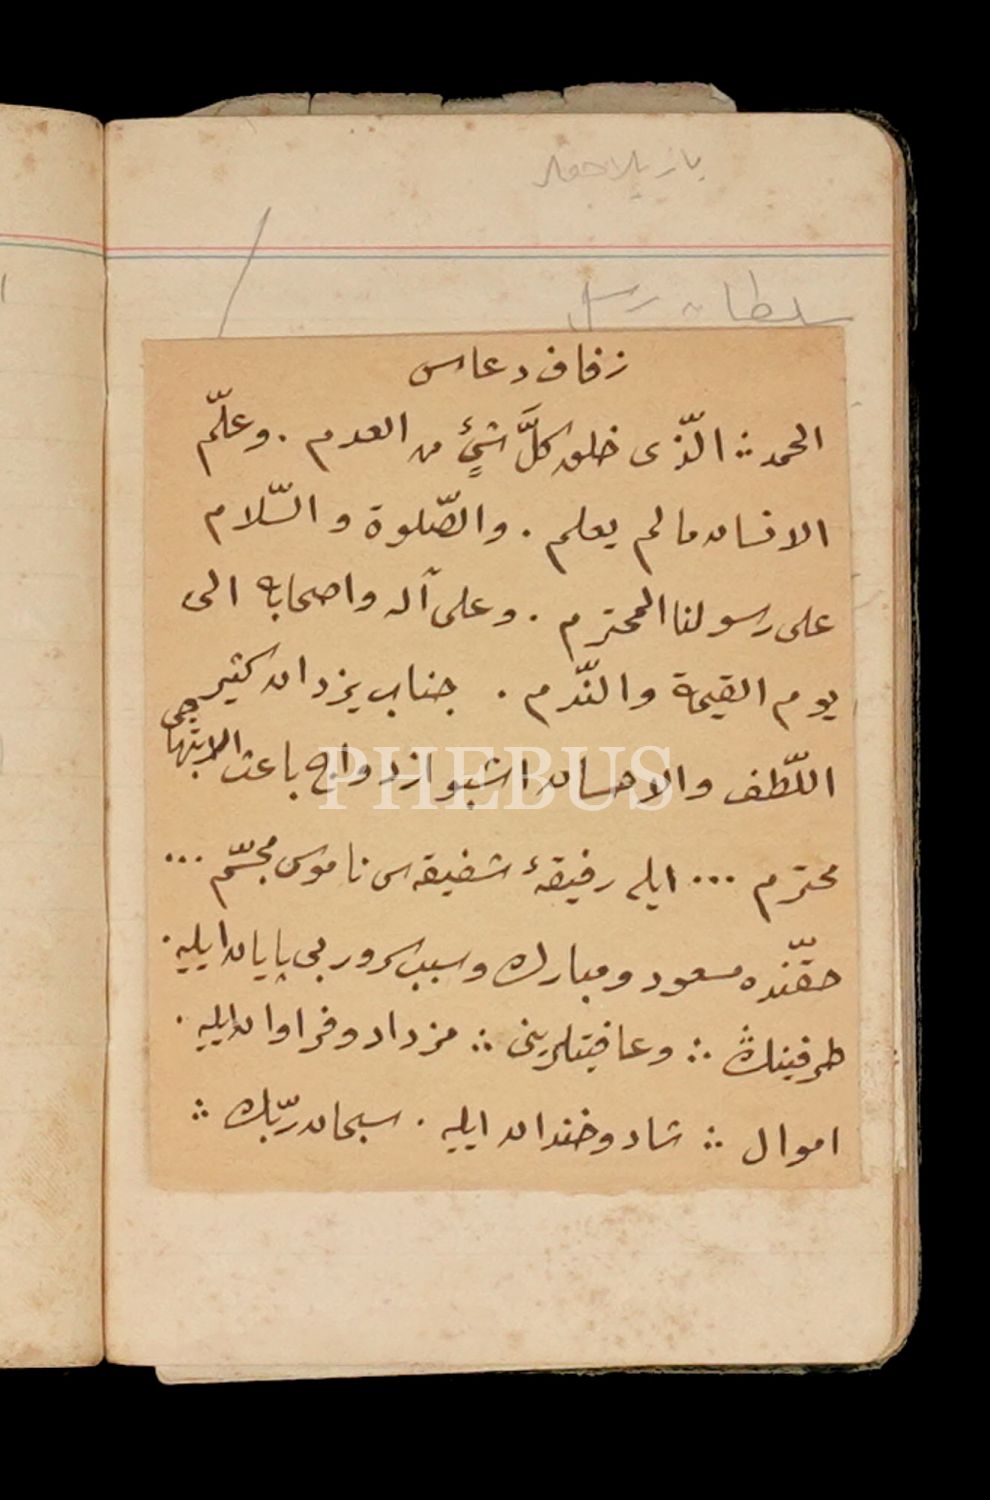 سلطان
زفاف دعاسى
الحمد لله الّذى خلق كلَّ شئٍ من العدم . وعلّم
الانسان مالم يعلم . والصّلوة والسّلام
على رسولنا المحترم . وعلى آله واصحابه الى
يوم القيمة والنّدم . جناب يزدان كثير
اللّطف والاحسان اشبو ازدواج باعث الابتهاجى
محترم ... ايله رفيقهٔ شفيقه سى ناموس مجسّم ...
حقّنده مسعود ومبارك وسبب سرور بى پايان ايليه .
طرفينك ؞ وعافيتلرينى ؞ مزداد وفراوان ايليه .
اموال ؞ شاد وخندان ايليه . سبحان ربّك ؞
PHEBUS